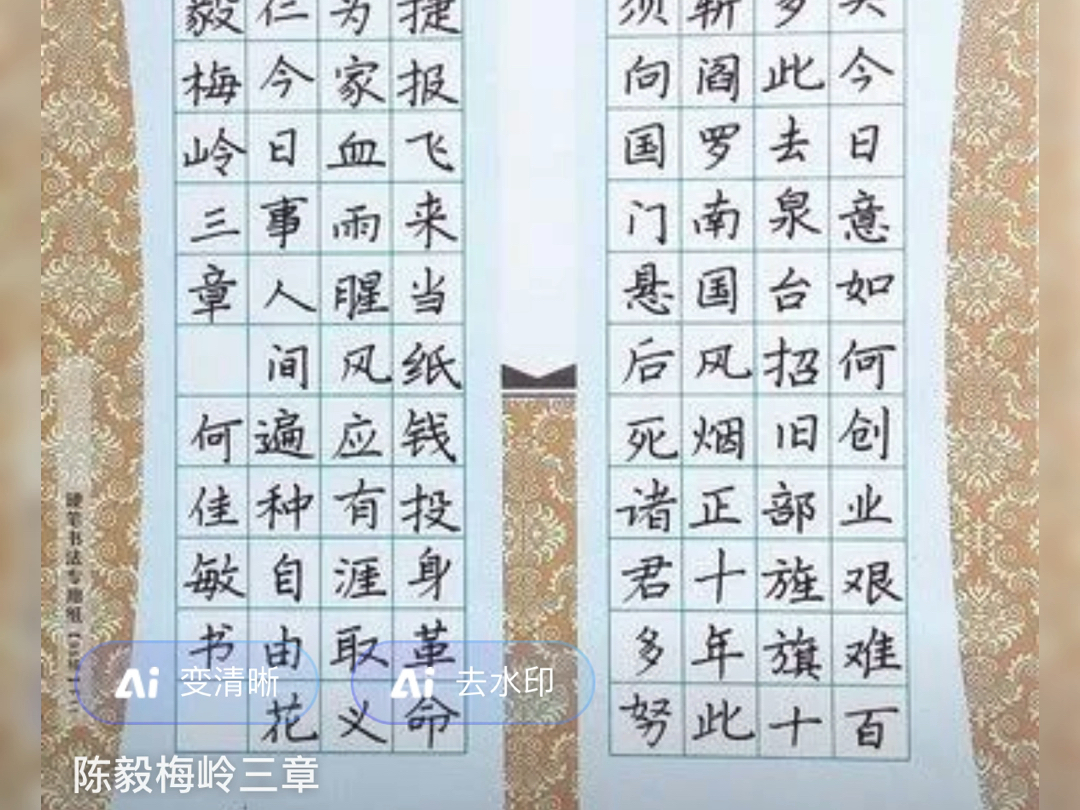 头今日意如何创业艰难百
多此去泉台招旧部旌旗十
斩阎罗南国风烟正十年此
须向国门悬后死诸君多努
捷报飞来当纸钱投身革命
为家血雨腥风应有涯取义
仁今日事人间遍种自由花
毅梅岭三章 何佳敏书
硬笔书法专用纸
Ai 变清晰
Ai 去水印
陈毅梅岭三章